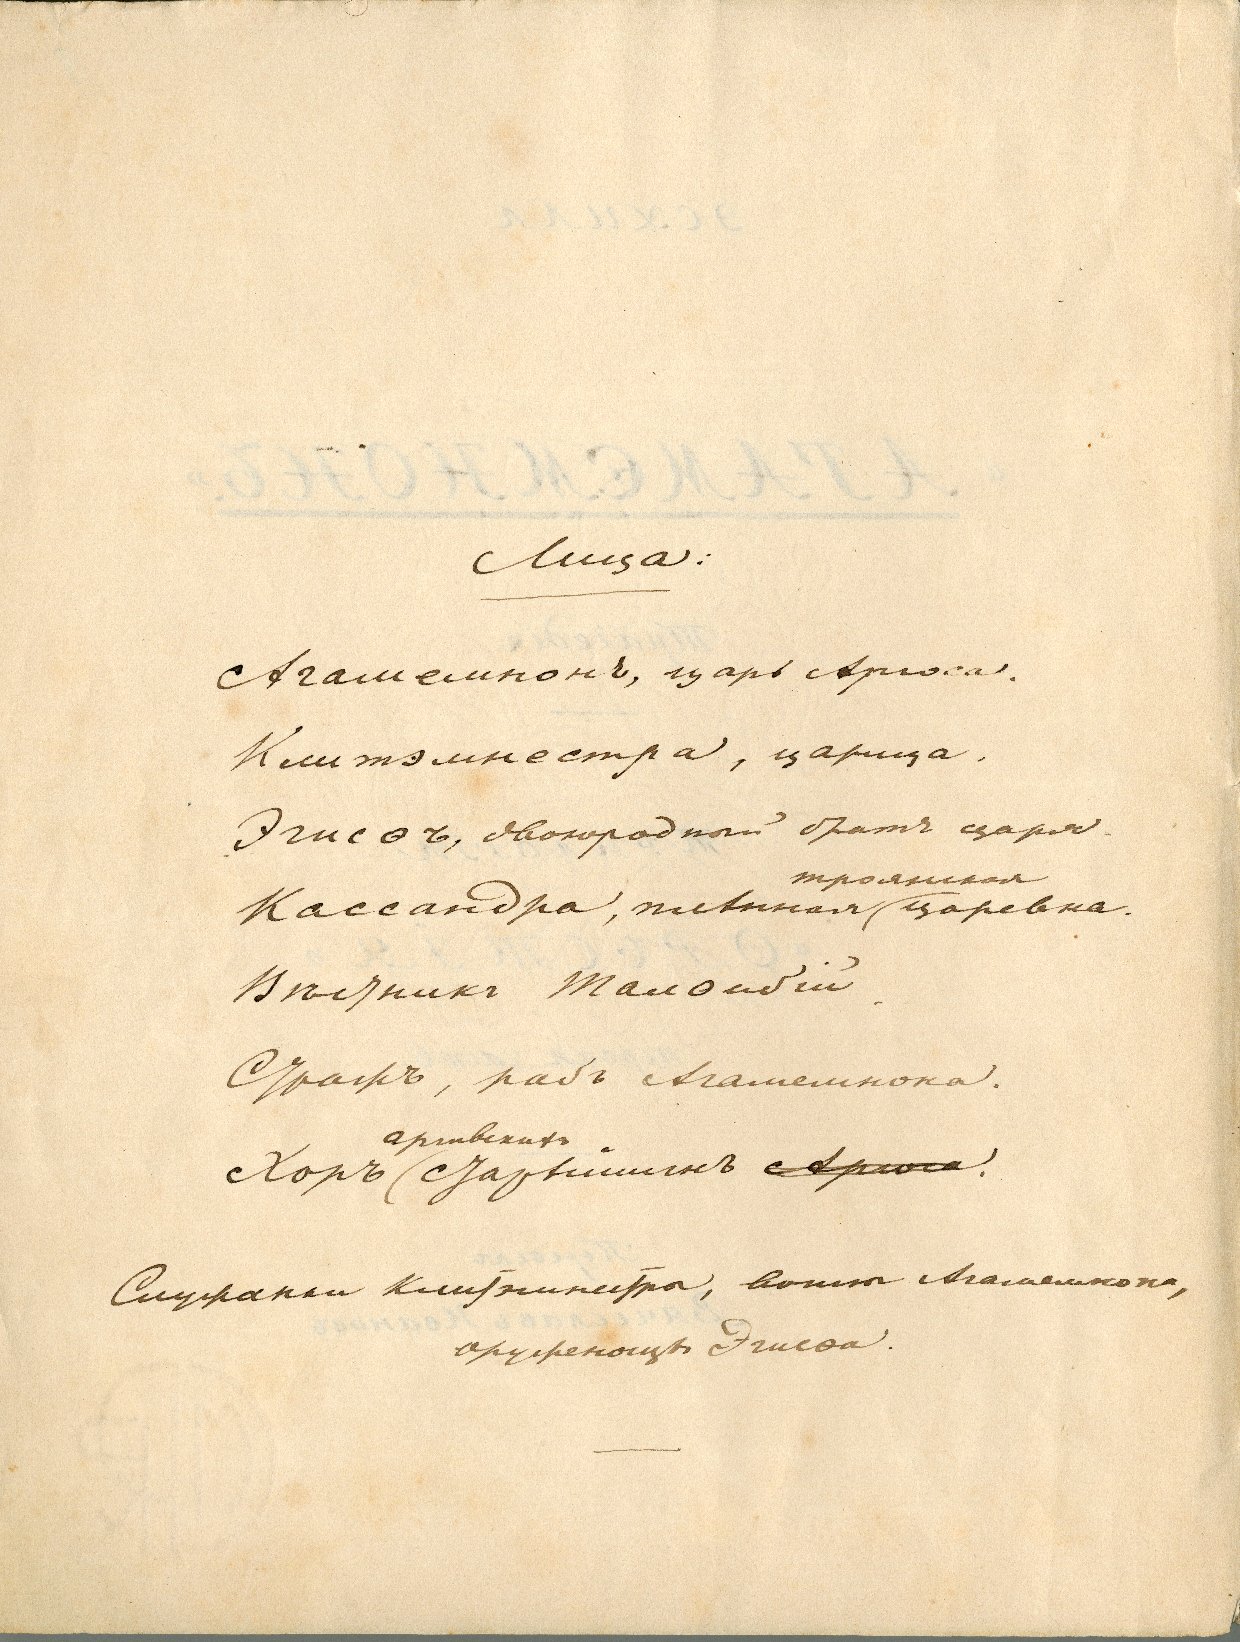 Лица:
Агамемнонъ, царь Аргоса.
Клитэмнестра, царица.
Эгисѳъ, двоюродный братъ царя.
троянская
Кассандра, плѣнная (царевна.
Вѣстникъ Талѳибій.
Стражъ, рабъ Агамемнона.
аргивскихъ
Хоръ (старѣйшинъ Аргоса.
Служанки Клитэмнестры, воины Агамемнона,
оруженосцы Эгисѳа.